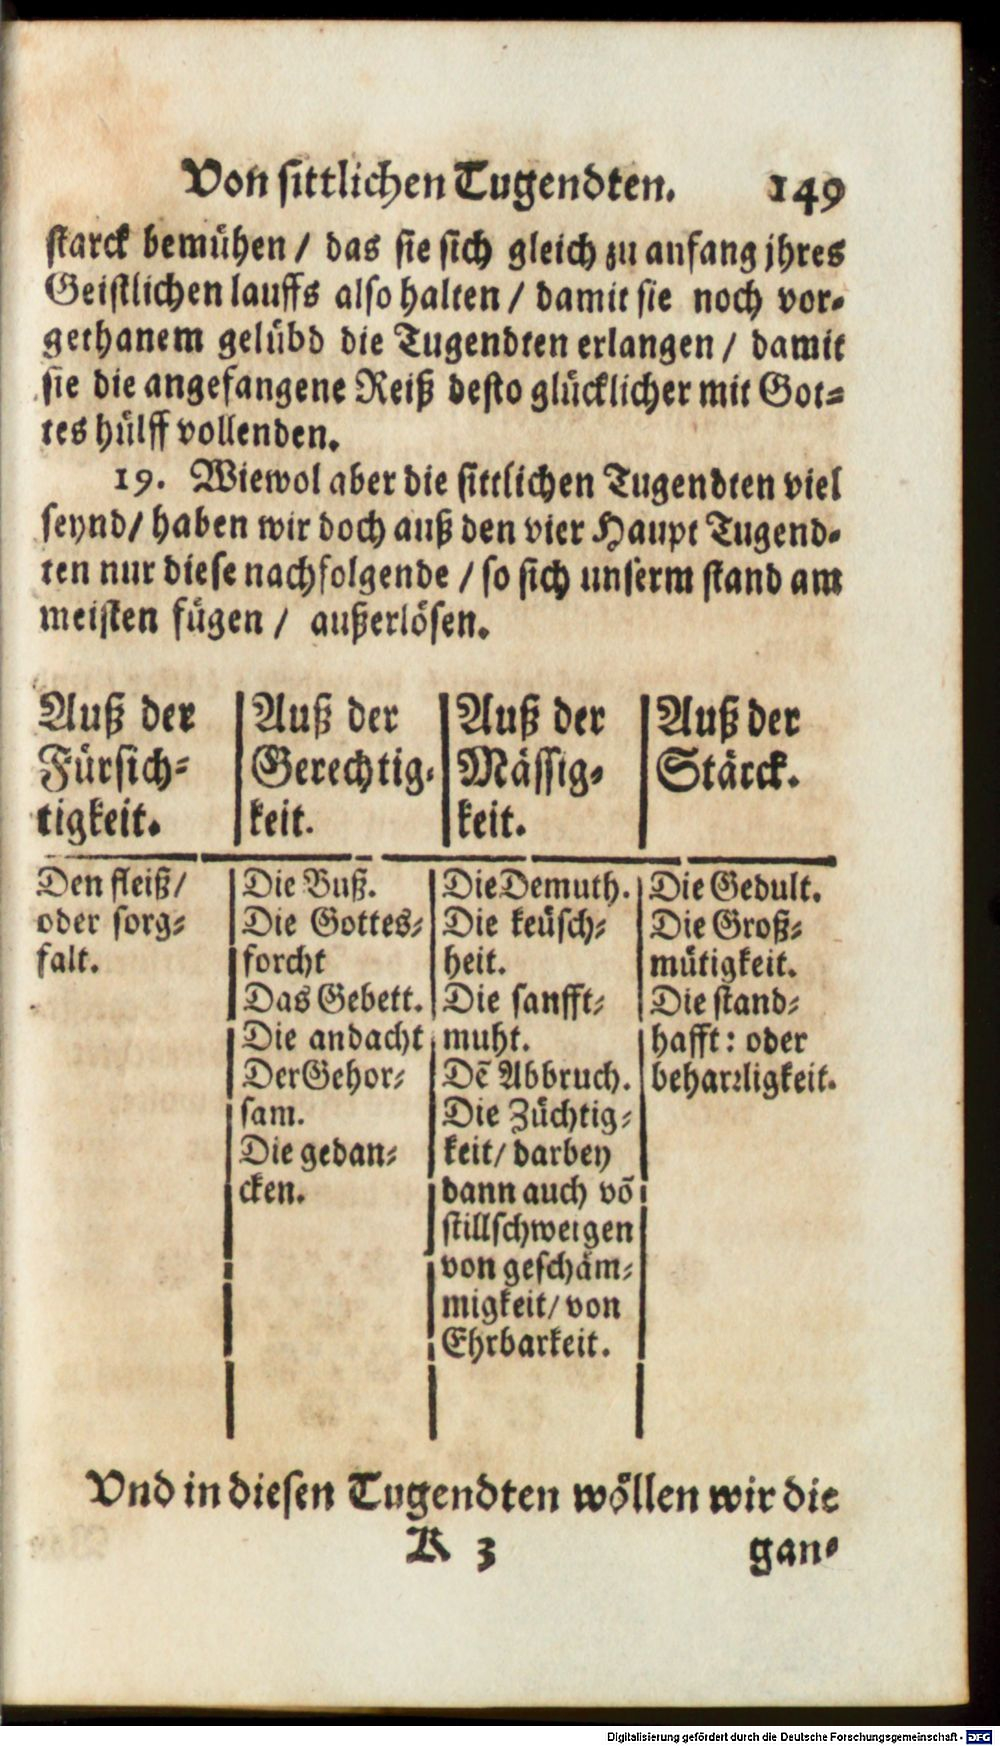 Von sittlichen Tugendten. 149
starck bemühen / das sie sich gleich zu anfang jhres
Geistlichen lauffs also halten / damit sie noch vor-
gethanem gelübd die Tugendten erlangen / damit
sie die angefangene Reiß desto glücklicher mit Got-
tes hülff vollenden.
19. Wiewol aber die sittlichen Tugendten viel
seynd / haben wir doch auß den vier Haupt Tugend-
ten nur diese nachfolgende / so sich unserm stand am
meisten fügen / außerlösen.
Auß der
Fürsich-
tigkeit.
Auß der
Gerechtig-
keit.
Auß der
Mässig-
keit.
Auß der
Stärck.
Den fleiß /
oder sorg-
falt.
Die Buß.
Die Gottes-
forcht
Das Gebett.
Die andacht
Der Gehor-
sam.
Die gedan-
cken.
Die Demuth.
Die keüsch-
heit.
Die sanfft-
muht.
Dē Abbruch.
Die Züchtig-
keit / darbey
dann auch võ
stillschweigen
von geschäm-
migkeit / von
Ehrbarkeit.
Die Gedult.
Die Groß-
mütigkeit.
Die stand-
hafft: oder
beharrligkeit.
Vnd in diesen Tugendten wöllen wir die
K 3 gan-
Digitalisierung gefördert durch die Deutsche Forschungsgemeinschaft - DFG